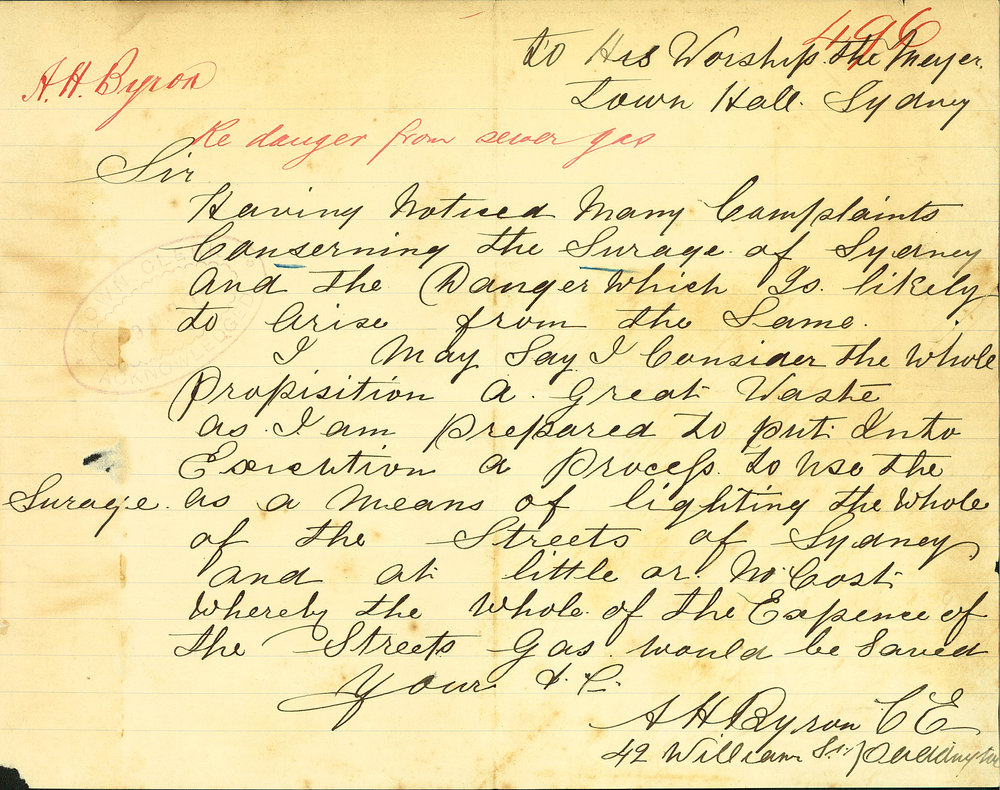 496
To His Worship. the Meyer.
A. H. Byron
Town Hall. Sydney
Re danger from sewer gas
Sir
Having Noticed Many Complaints
Conserning the Surage. of Sydney
And the Danger Which Is. likely
to Arise from the Same.
I May Say I Consider the Whole
Proposition A. Great Waste
as. I am prepared to put Into
Execution a Process. to Use the
Surage. as a Means of lighting the Whole
of the Streets of Sydney
and at little or No Cost
Whereby the Whole. of the Expence of
the Streets Gas would be Saved
Your &. C.
A H Byron C E
42 William St. Paddington
TOWN CLERK
ACKNOWLEDGED